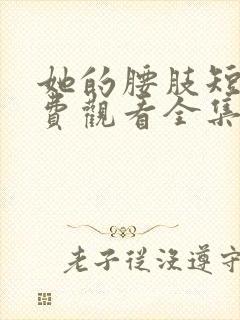 她的腰肢短
費觀看全集
老子從沒遵守